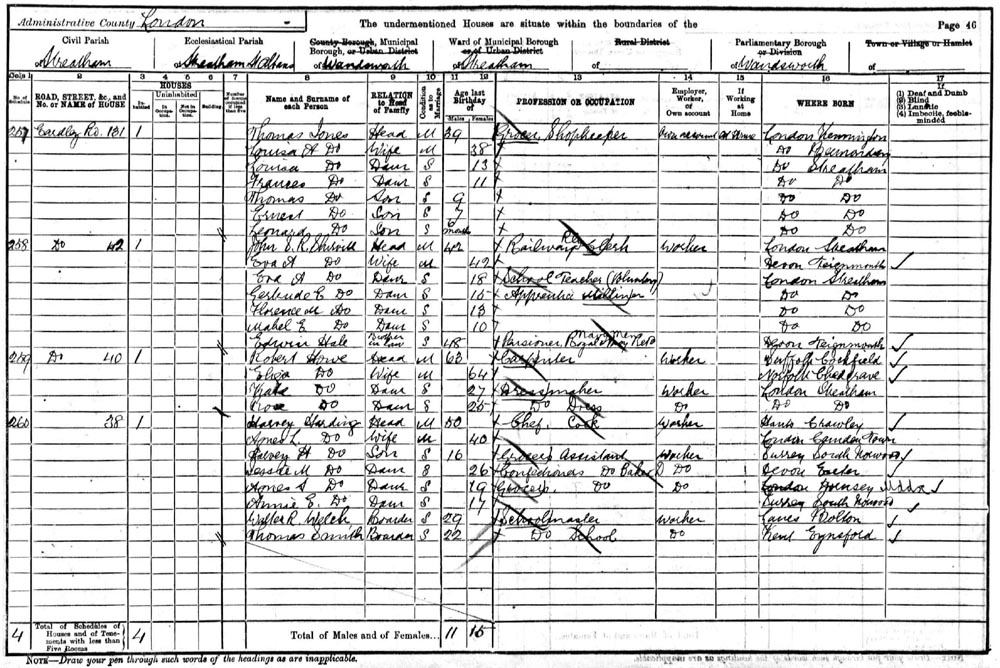 Administrative County London
The undermentioned Houses are situate within the boundaries of the
Page 46
Civil Parish
of Streatham
Ecclesiastical Parish
of
County Borough, Municipal Borough, or Urban District
of Wandsworth
Ward of Municipal Borough or of Urban District
of Streatham
Rural District
of
Parliamentary Borough or Division
of Wandsworth
Town or Village or Hamlet
of
Cols 1 2 3 4 5 6 7 8 9 10 11 12 13 14 15 16 17
No. of Schedule
ROAD, STREET, &c., and No. or NAME of HOUSE
HOUSES
Inhabited
Uninhabited
In Occupation
Not in Occupation
Building
Name and Surname of each Person
RELATION to Head of Family
Condition as to Marriage
Age last Birthday of
Males
Females
PROFESSION OR OCCUPATION
Employer, Worker, or Own account
If Working at Home
WHERE BORN
If
(1) Deaf and Dumb
(2) Blind
(3) Lunatic
(4) Imbecile, feeble-minded
257 Eardley Rd. 131 1 Thomas Jones Head M 39 Shopkeeper Own account At Home London Kennington
Louisa A Do Wife M 38 Do Bermondsey
Louisa Do Daur S 13 Do Streatham
Frances Do Daur S 11 Do Do
Thomas Do Son S 9 Do Do
Ernest Do Son S 7 Do Do
Leonard Do Son S 6 month Do Do
258 Do 42 1 John S. R. Head M 42 Railway Clerk Worker London Streatham
Eva A Do Wife M 42 Devon Teignmouth
Eva A Do Daur S 18 School Teacher (Voluntary) London Streatham
Gertrude E Do Daur S 15 Apprentice Milliner Do Do
Florence M Do Daur S 13 Do Do
Mabel E Do Daur S 10 Do Do
Edwin Hale Brother in law S 48 Pensioner Royal Navy Retd Devon Teignmouth
259 Do 40 1 Robert Howe Head M 63 Carpenter Worker Suffolk Cockfield
Eliza Do Wife M 64 Norfolk Chedgrave
Kate Do Daur S 27 Dressmaker Worker London Streatham
Rose Do Daur S 25 Do Dress Do Do Do
260 38 1 Harvey Harding Head M 50 Chef, Cook Worker Hants Crawley
Agnes L. Do Wife M 40 London Camden Town
Harvey H Do Son S 16 Grocers Assistant Worker Surrey South Norwood
Jessie M Do Daur S 26 Confectioners Do Baker Do Devon Exeter
Agnes S Do Daur S 19 Grocers Do Do London Hornsey Middx
Annie E. Do Daur S 17 Surrey South Norwood
Walter R. Welch Boarder S 29 Schoolmaster Worker Lancs Bolton
Thomas Smith Boarder S 22 Do School Do Kent Eynsford
4 Total of Schedules of Houses and of Tenements with less than Five Rooms 4 Total of Males and of Females... 11 15
NOTE—Draw your pen through such words of the headings as are inapplicable.